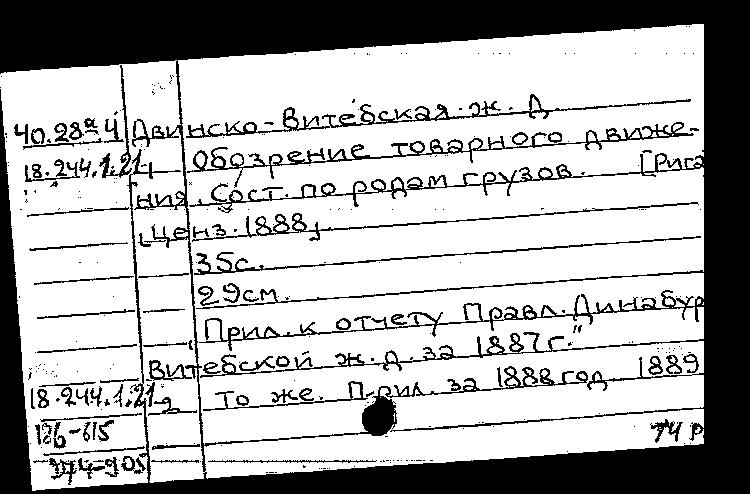 40.28ª 4 Двинско-Витебская ж. д.
18.244.1.21-1 Обозрение товарного движе-
ния. Сост. по родам грузов. [Рига
[Ценз. 1888].
35с.
29см.
"Прил. к отчету Правл. Динабур
Витебской ж.д. за 1887 г."
18.244.1.21-2 То же. Прил. за 1888 год 1889
126-615
74 р